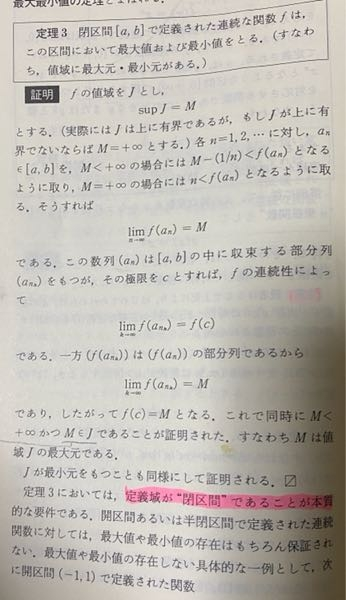 最大最小値の定理とよばれる．
定理3 閉区間[a, b]で定義された連続な関数 f は，
この区間において最大値および最小値をとる．（すなわ
ち，値域に最大元・最小元がある．）
証明 f の値域を J とし，
sup J = M
とする．（実際には J は上に有界であるが，もし J が上に有
界でないならば M=+∞ とする．）各 n=1, 2, … に対し，an
∈[a, b]を，M<+∞ の場合には M-(1/n)<f(an) となる
ように取り，M=+∞ の場合には n<f(an) となるように取
る．そうすれば
lim n→∞ f(an) = M
である．この数列(an)は[a, b]の中に収束する部分列
(ank)をもつが，その極限を c とすれば，f の連続性によっ
て
lim k→∞ f(ank) = f(c)
である．一方(f(ank))は(f(an))の部分列であるから
lim k→∞ f(ank) = M
であり，したがって f(c)=M となる．これで同時に M<
+∞ かつ M∈J であることが証明された．すなわち M は値
域 J の最大元である．
J が最小元をもつことも同様にして証明される．
定理3においては，定義域が“閉区間”であることが本質
的な要件である．開区間あるいは半閉区間で定義された連続
関数に対しては，最大値や最小値の存在はもちろん保証され
ない．最大値や最小値の存在しない具体的な一例として，次
に開区間(-1, 1)で定義された関数